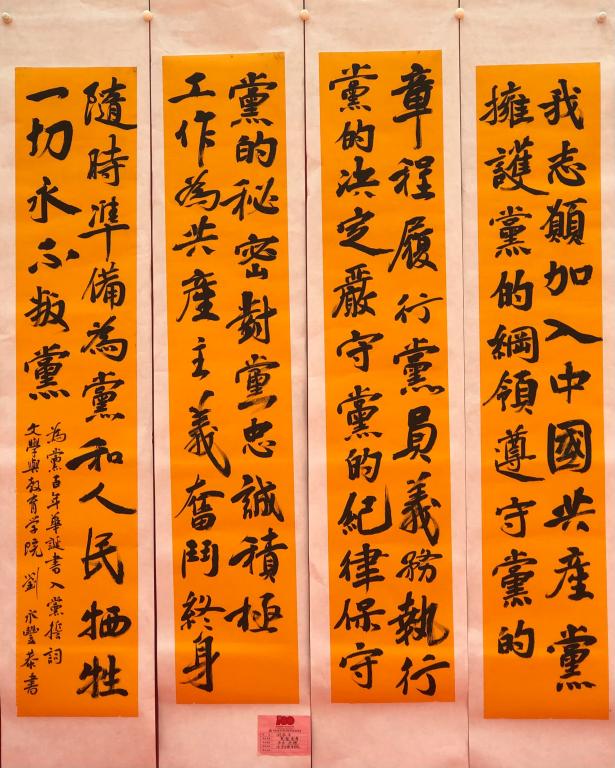 我志願加入中國共産黨
擁護黨的綱領遵守黨的
章程履行黨員義務執行
黨的決定嚴守黨的紀律保守
黨的秘密對黨忠誠積極
工作為共産主義奮鬥終身
隨時準備為黨和人民牺牲
一切永不叛黨
為黨百年華誕書入黨誓詞
文學與教育学院 劉永豐恭書
100